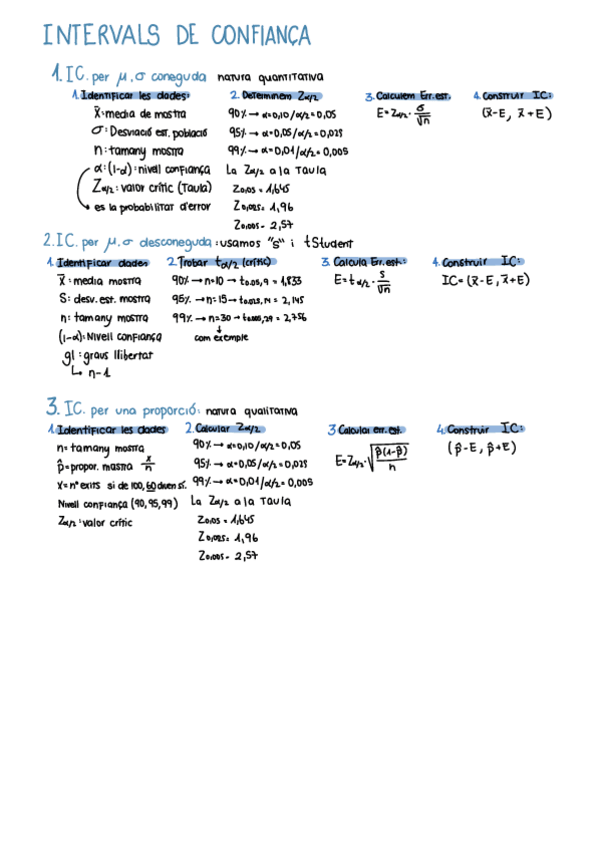 INTERVALS DE CONFIANÇA
1. IC. per μ, σ coneguda natura quantitativa
1. Identificar les dades:
x̄: media de mostra
σ: Desviació est. població
n: tamany mostra
α: (1-α): nivell confiança
Zα/2: valor crític (Taula)
es la probabilitat d'error
2. Determinem Zα/2
90% → α=0,10/α/2=0,05
95% → α=0,05/α/2=0,025
99% → α=0,01/α/2=0,005
La Zα/2 a la Taula
Z0,05 = 1,645
Z0,025 = 1,96
Z0,005 = 2,57
3. Calculem Err. est.
E = Zα/2 · σ/√n
4. Construir IC:
(x̄-E, x̄+E)
2. IC. per μ, σ desconeguda: usamos "s" i t Student
1. Identificar dades
x̄: media mostra
S: desv. est. mostra
n: tamany mostra
(1-α): Nivell confiança
gl: graus llibertat
↳ n-1
2. Trobar tα/2 (crític)
90% → n=10 → t0.05, 9 = 1,833
95% → n=15 → t0.025, 14 = 2,145
99% → n=30 → t0.005, 29 = 2,756
↓
com exemple
3. Calcula Err. est.:
E = tα/2 · s/√n
4. Construir IC:
IC = (x̄-E, x̄+E)
3. IC. per una proporció: natura qualitativa
1. Identificar les dades
n = tamany mostra
p̂ = propor. mastra x/n
x = nº exits si de 100, 60 diuen sí.
Nivell confiança (90, 95, 99)
Zα/2: valor crític
2. Calcular Zα/2
90% → α=0,10/α/2=0,05
95% → α=0,05/α/2=0,025
99% → α=0,01/α/2=0,005
La Zα/2 a la Taula
Z0,05 = 1,645
Z0,025 = 1,96
Z0,005 = 2,57
3 Calcular err. est.
E = Zα/2 · √p̂(1-p̂)/n
4. Construir IC:
(p̂-E, p̂+E)